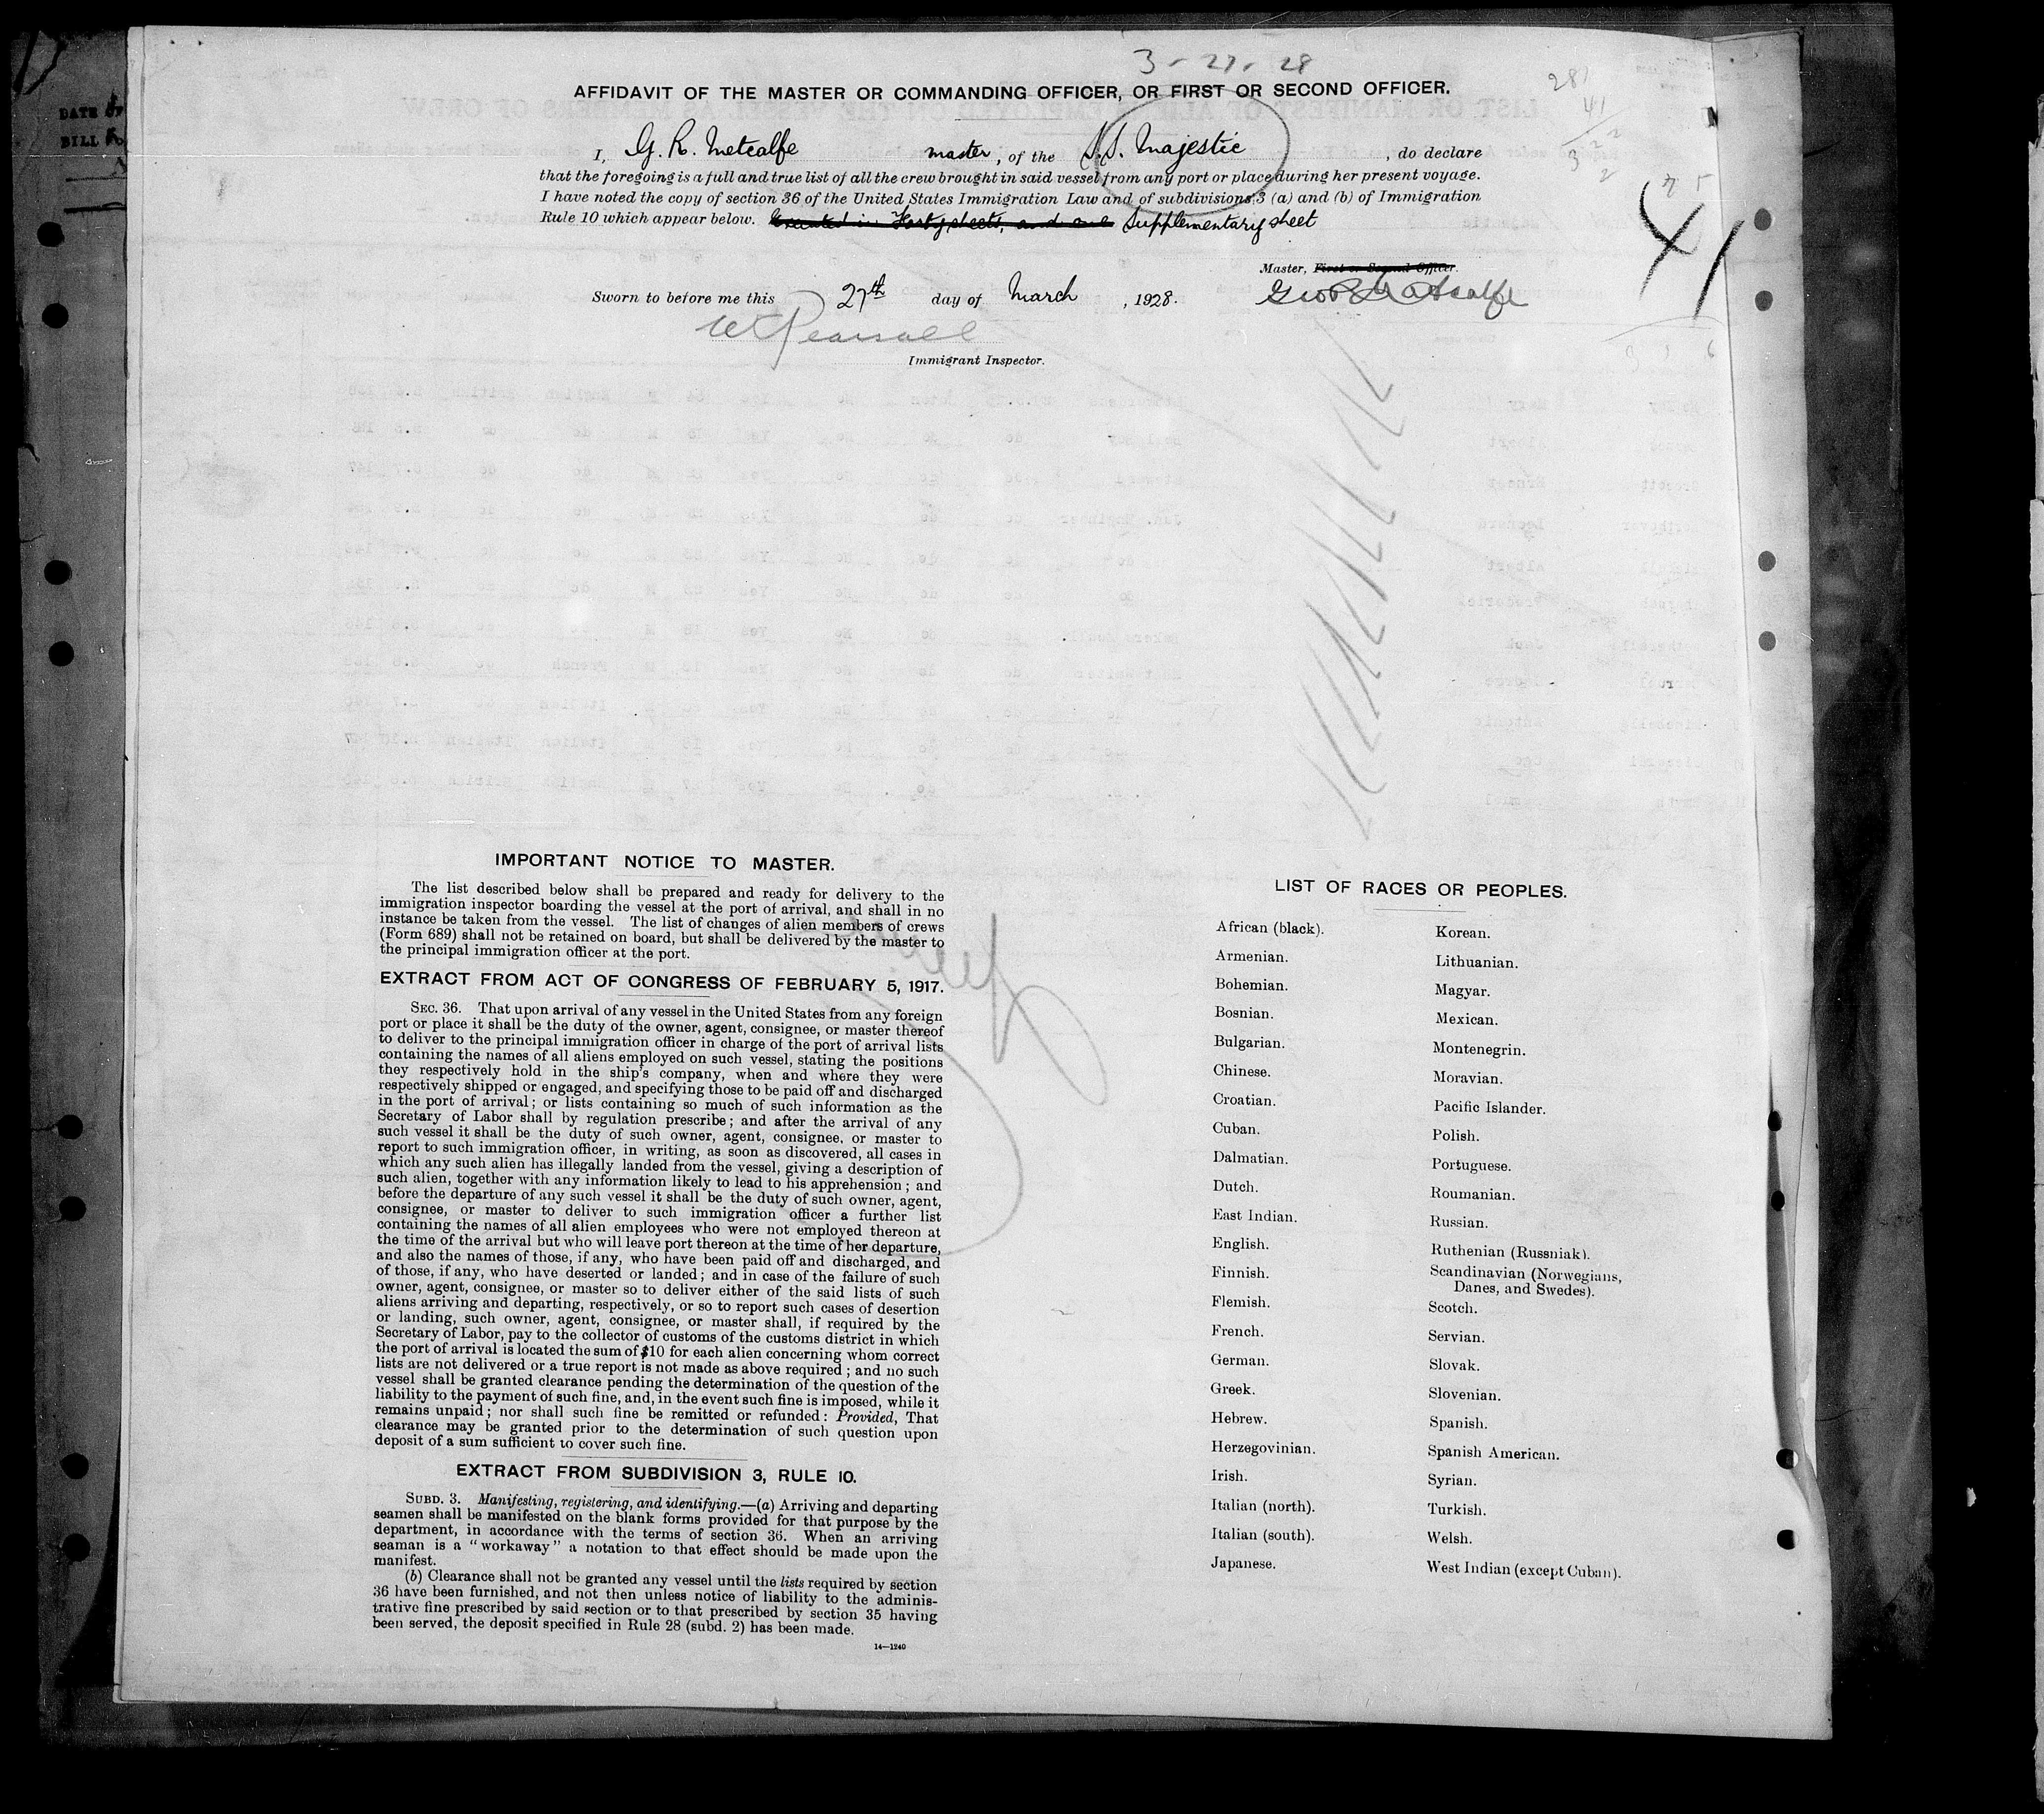 3-27-28
AFFIDAVIT OF THE MASTER OR COMMANDING OFFICER, OR FIRST OR SECOND OFFICER.
I, G. R. Metcalfe master, of the S.S. Majestic, do declare
that the foregoing is a full and true list of all the crew brought in said vessel from any port or place during her present voyage.
I have noted the copy of section 36 of the United States Immigration Law and of subdivisions 3 (a) and (b) of Immigration
Rule 10 which appear below. Supplementary sheet
41
Master, First or Second Officer.
Sworn to before me this 27th day of March, 1928.
Geo R Metcalfe
W Pearsall
Immigrant Inspector.
IMPORTANT NOTICE TO MASTER.
The list described below shall be prepared and ready for delivery to the
immigration inspector boarding the vessel at the port of arrival, and shall in no
instance be taken from the vessel. The list of changes of alien members of crews
(Form 689) shall not be retained on board, but shall be delivered by the master to
the principal immigration officer at the port.
EXTRACT FROM ACT OF CONGRESS OF FEBRUARY 5, 1917.
SEC. 36. That upon arrival of any vessel in the United States from any foreign
port or place it shall be the duty of the owner, agent, consignee, or master thereof
to deliver to the principal immigration officer in charge of the port of arrival lists
containing the names of all aliens employed on such vessel, stating the positions
they respectively hold in the ship's company, when and where they were
respectively shipped or engaged, and specifying those to be paid off and discharged
in the port of arrival; or lists containing so much of such information as the
Secretary of Labor shall by regulation prescribe; and after the arrival of any
such vessel it shall be the duty of such owner, agent, consignee, or master to
report to such immigration officer, in writing, as soon as discovered, all cases in
which any such alien has illegally landed from the vessel, giving a description of
such alien, together with any information likely to lead to his apprehension; and
before the departure of any such vessel it shall be the duty of such owner, agent,
consignee, or master to deliver to such immigration officer a further list
containing the names of all alien employees who were not employed thereon at
the time of the arrival but who will leave port thereon at the time of her departure,
and also the names of those, if any, who have been paid off and discharged, and
of those, if any, who have deserted or landed; and in case of the failure of such
owner, agent, consignee, or master so to deliver either of the said lists of such
aliens arriving and departing, respectively, or so to report such cases of desertion
or landing, such owner, agent, consignee, or master shall, if required by the
Secretary of Labor, pay to the collector of customs of the customs district in which
the port of arrival is located the sum of $10 for each alien concerning whom correct
lists are not delivered or a true report is not made as above required; and no such
vessel shall be granted clearance pending the determination of the question of the
liability to the payment of such fine, and, in the event such fine is imposed, while it
remains unpaid; nor shall such fine be remitted or refunded: Provided, That
clearance may be granted prior to the determination of such question upon
deposit of a sum sufficient to cover such fine.
EXTRACT FROM SUBDIVISION 3, RULE 10.
SUBD. 3. Manifesting, registering, and identifying.—(a) Arriving and departing
seamen shall be manifested on the blank forms provided for that purpose by the
department, in accordance with the terms of section 36. When an arriving
seaman is a "workaway" a notation to that effect should be made upon the
manifest.
(b) Clearance shall not be granted any vessel until the lists required by section
36 have been furnished, and not then unless notice of liability to the adminis-
trative fine prescribed by said section or to that prescribed by section 35 having
been served, the deposit specified in Rule 28 (subd. 2) has been made.
14—1240
LIST OF RACES OR PEOPLES.
African (black).
Armenian.
Bohemian.
Bosnian.
Bulgarian.
Chinese.
Croatian.
Cuban.
Dalmatian.
Dutch.
East Indian.
English.
Finnish.
Flemish.
French.
German.
Greek.
Hebrew.
Herzegovinian.
Irish.
Italian (north).
Italian (south).
Japanese.
Korean.
Lithuanian.
Magyar.
Mexican.
Montenegrin.
Moravian.
Pacific Islander.
Polish.
Portuguese.
Roumanian.
Russian.
Ruthenian (Russniak).
Scandinavian (Norwegians,
Danes, and Swedes).
Scotch.
Servian.
Slovak.
Slovenian.
Spanish.
Spanish American.
Syrian.
Turkish.
Welsh.
West Indian (except Cuban).